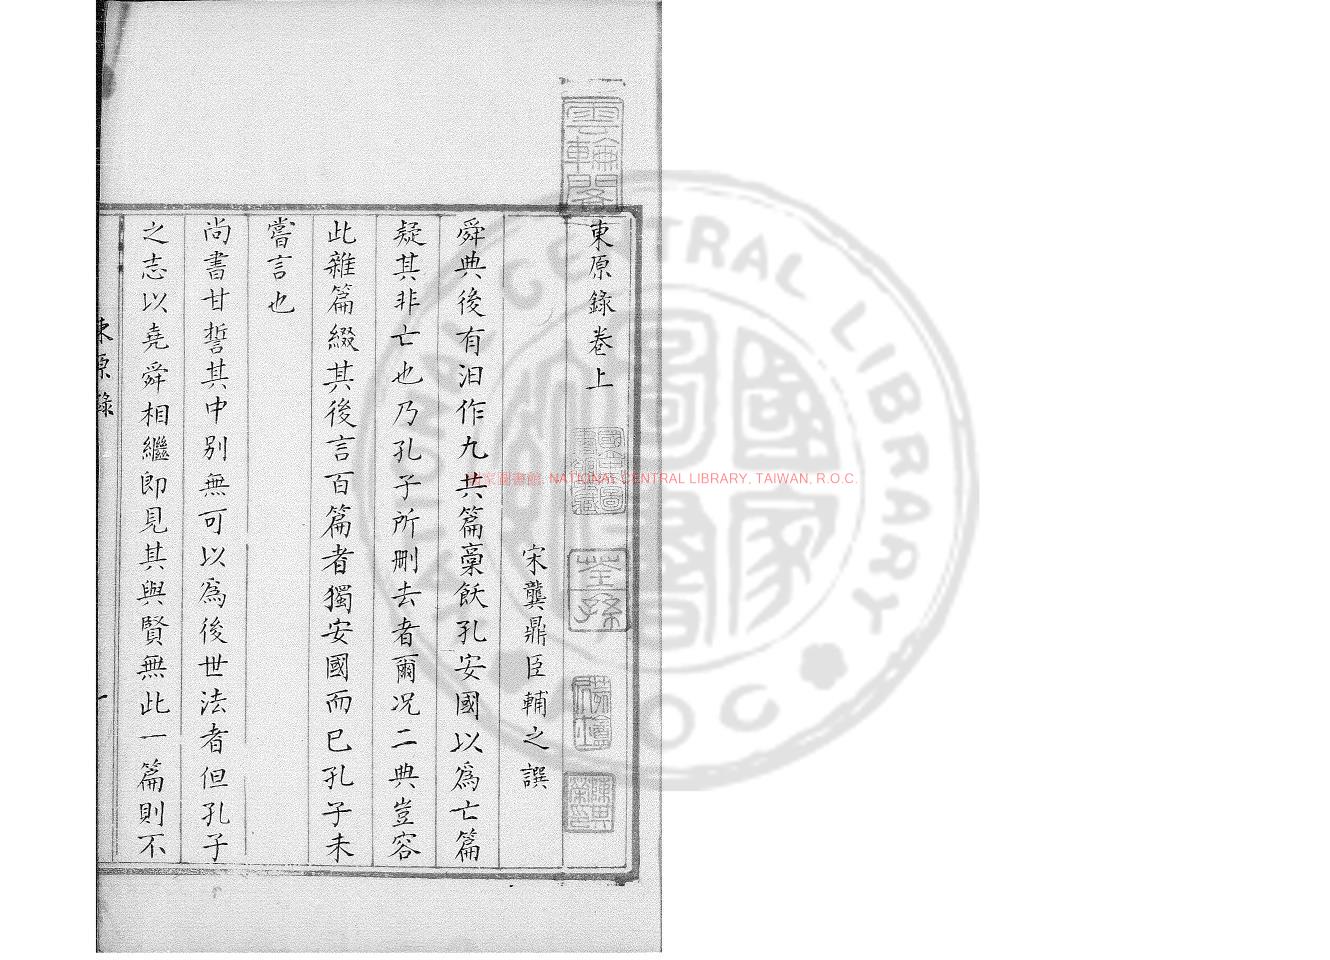 東原錄卷上
宋龔鼎臣輔之譔
舜典後有汨作九共篇稾飫孔安國以爲亡篇
疑其非亡也乃孔子所刪去者爾况二典豈容
此雜篇綴其後言百篇者獨安國而已孔子未
嘗言也
尚書甘誓其中別無可以爲後世法者但孔子
之志以堯舜相繼即見其與賢無此一篇則不
東原錄
一
雲輪閣
荃孫
國家圖書館, NATIONAL CENTRAL LIBRARY, TAIWAN, R.O.C.
NATIONAL CENTRAL LIBRARY
R.O.C.